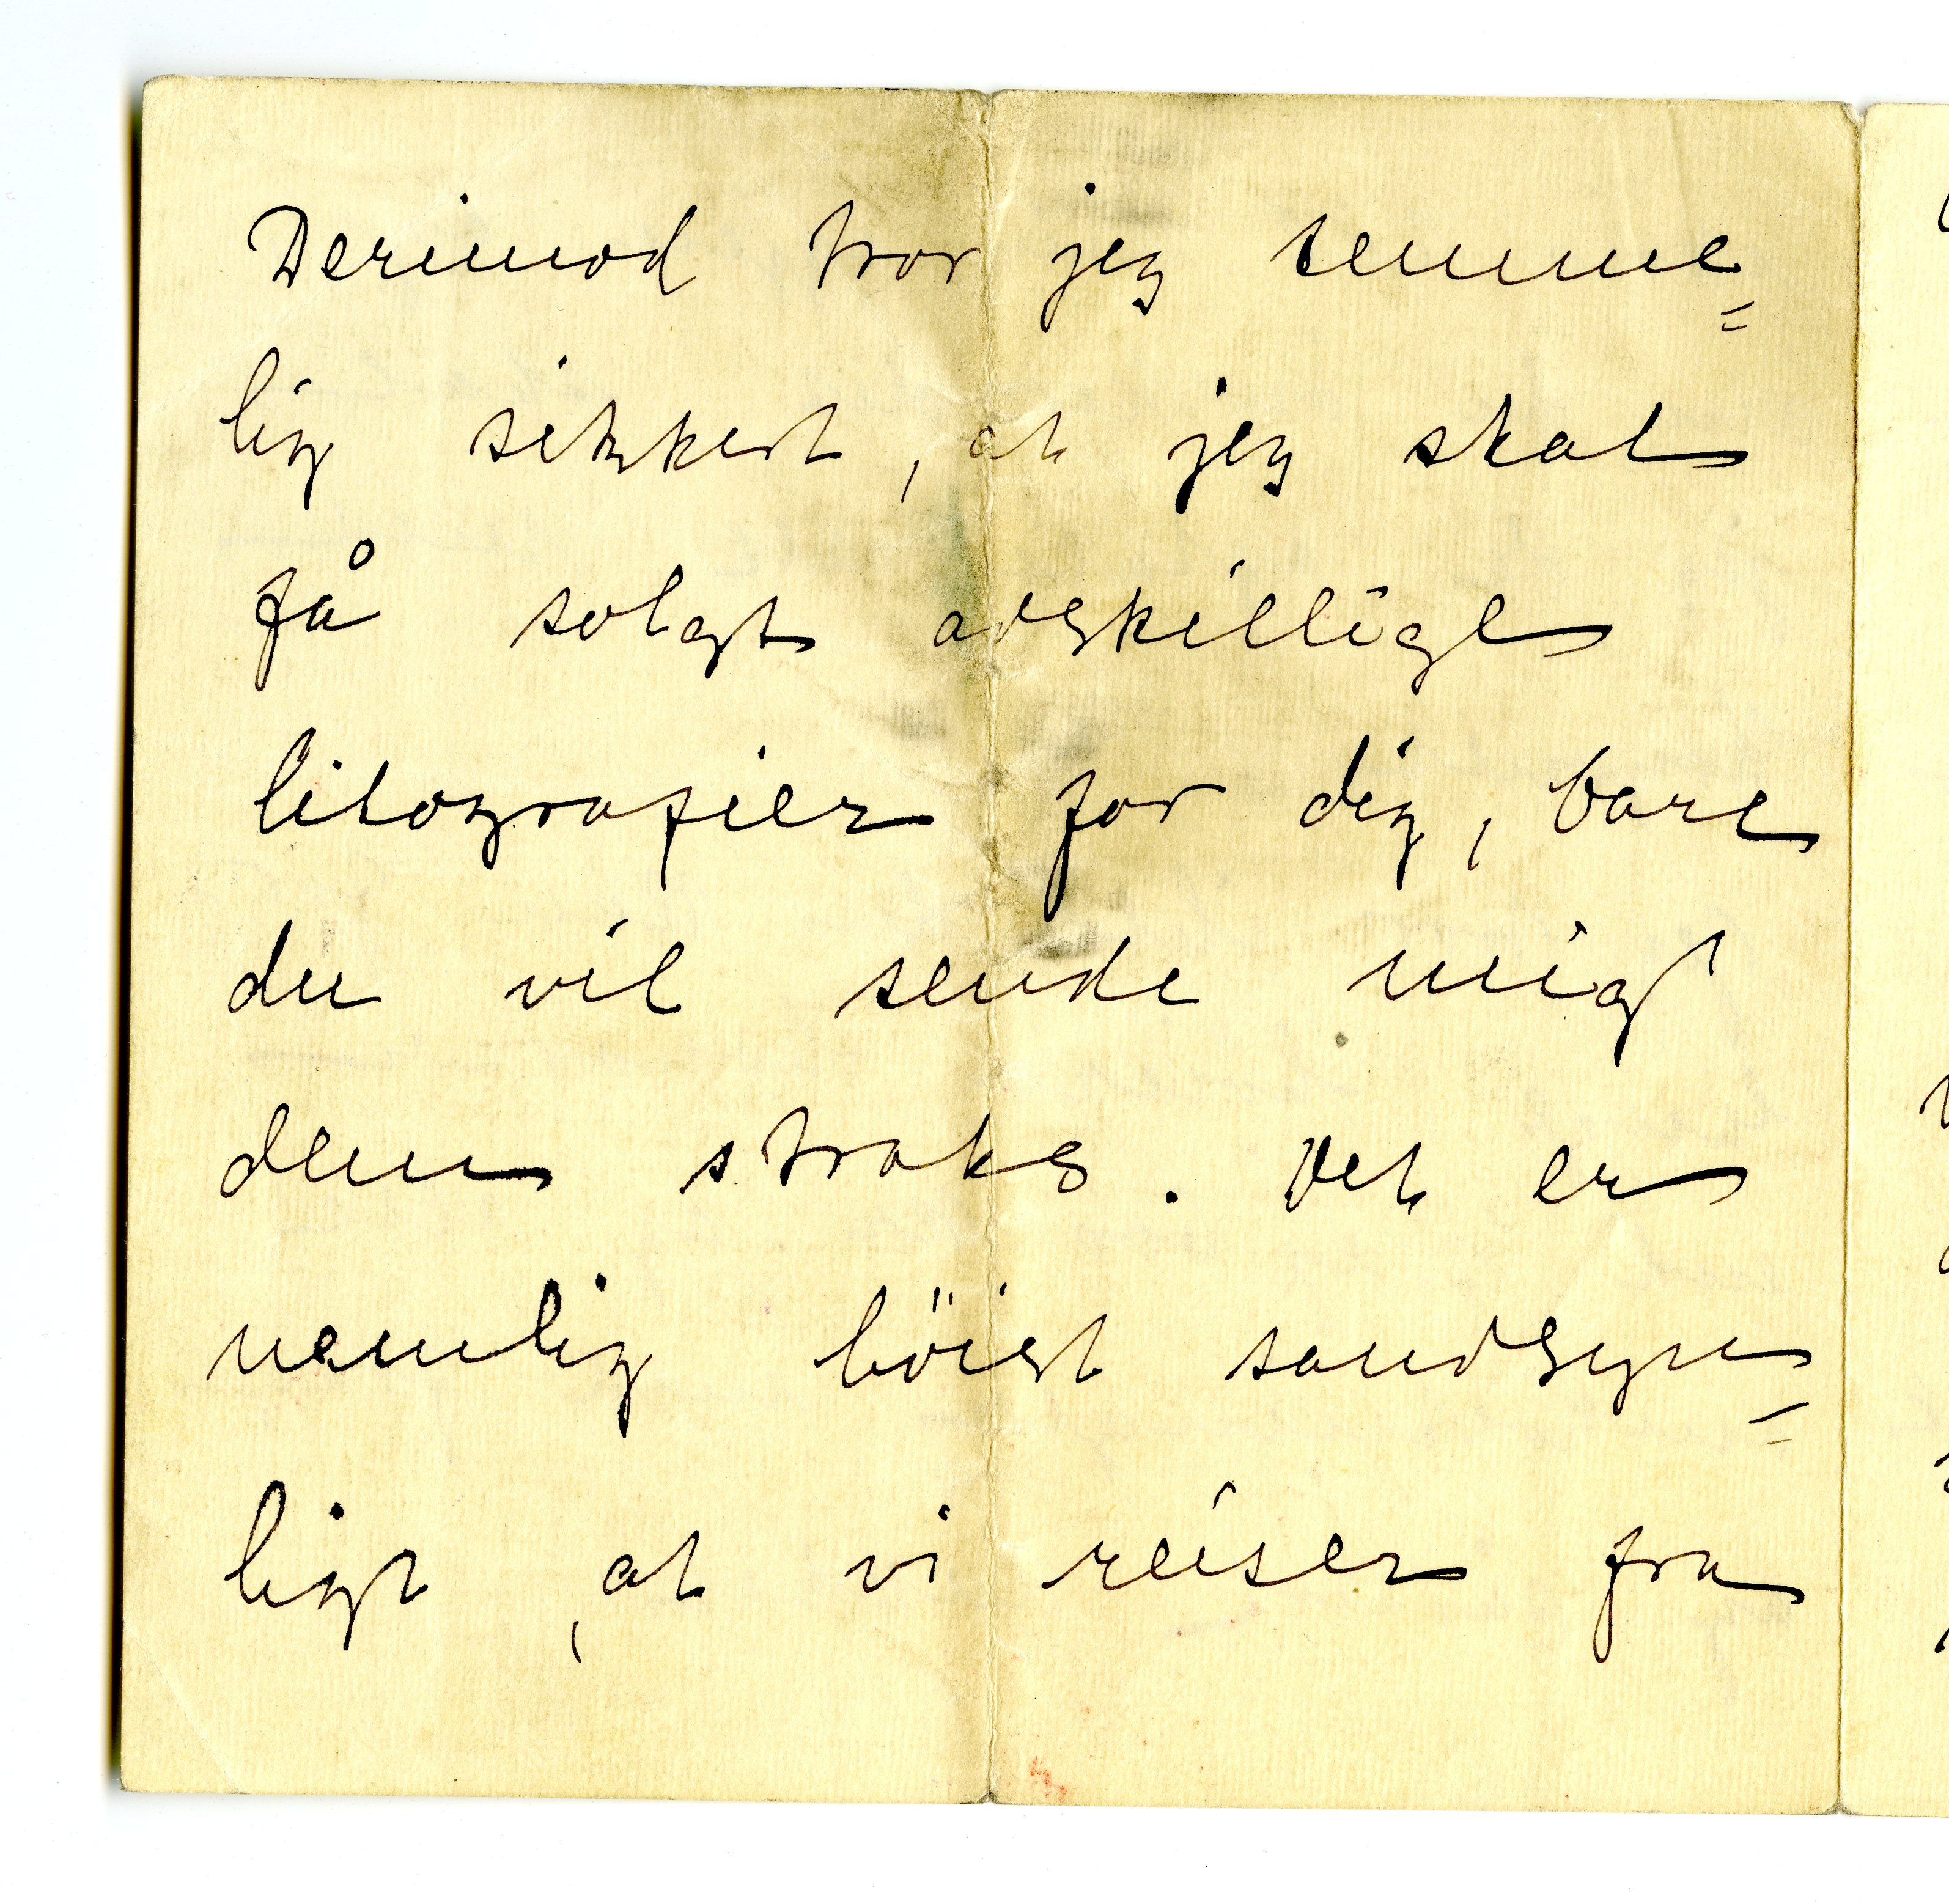 Derimod tror jeg temme=
lig sikkert, at jeg skal
få solgt adskillige
litografier for dig, bare
du vil sende mig
dem straks. Det er
nemlig höist sandsyn=
ligt, at vi reiser fra